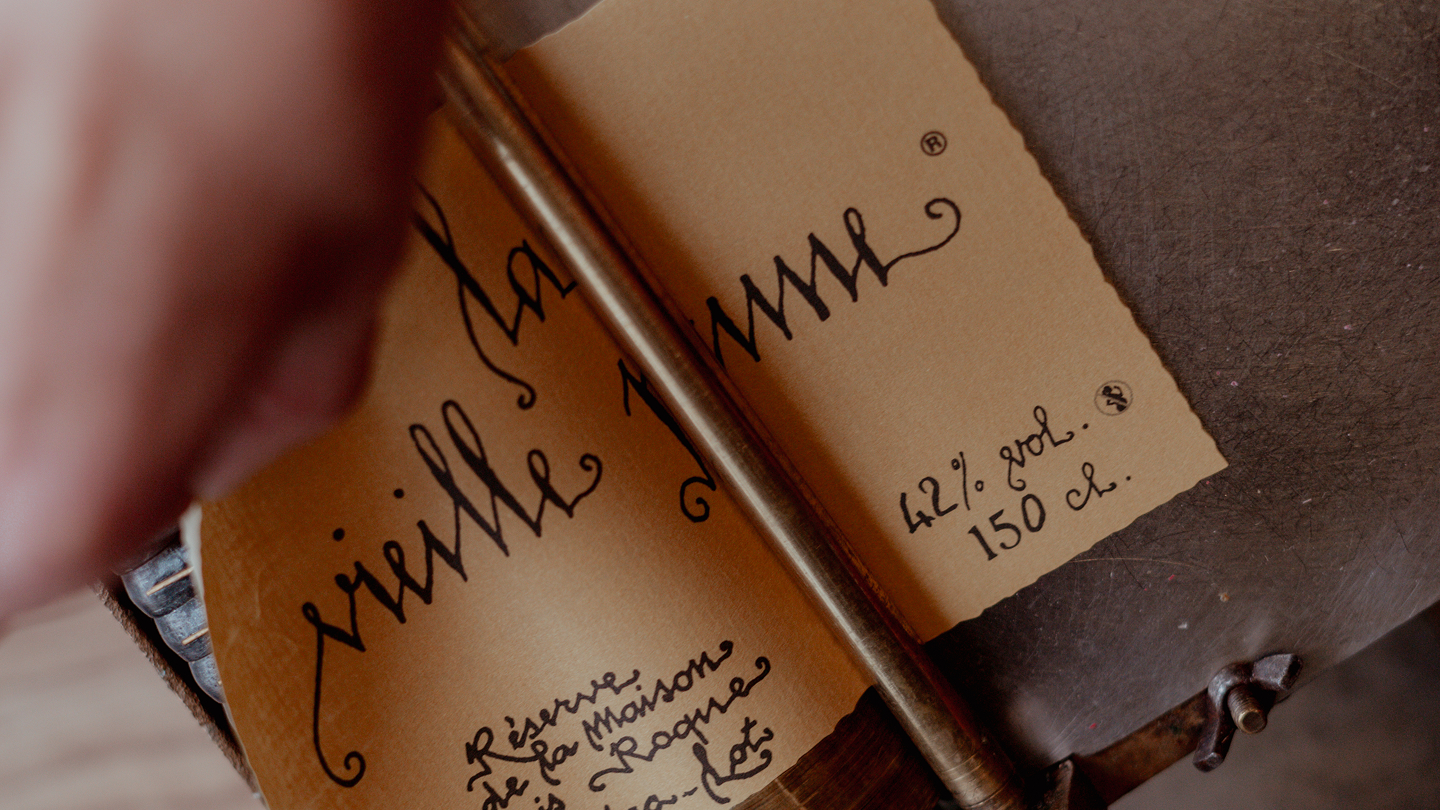 La
vieille prune ®
42% vol.
150 cl.
Réserve
de la Maison
Roque
Lot